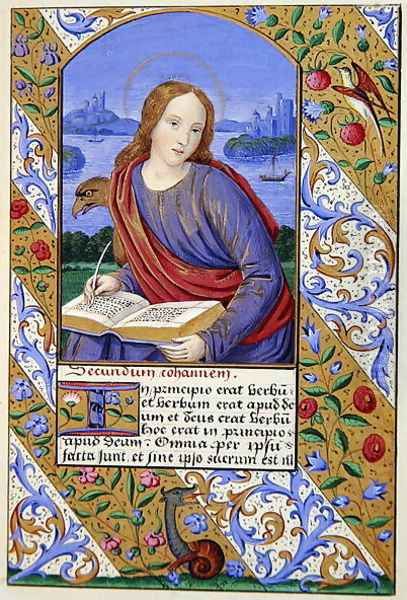 Secundum iohannem.
In principio erat Verbū
et Verbum erat apud de
um et Deus erat Verbū
hoc erat in principio
apud Deum: Omnia per ipsū
facta sunt, et sine ipso